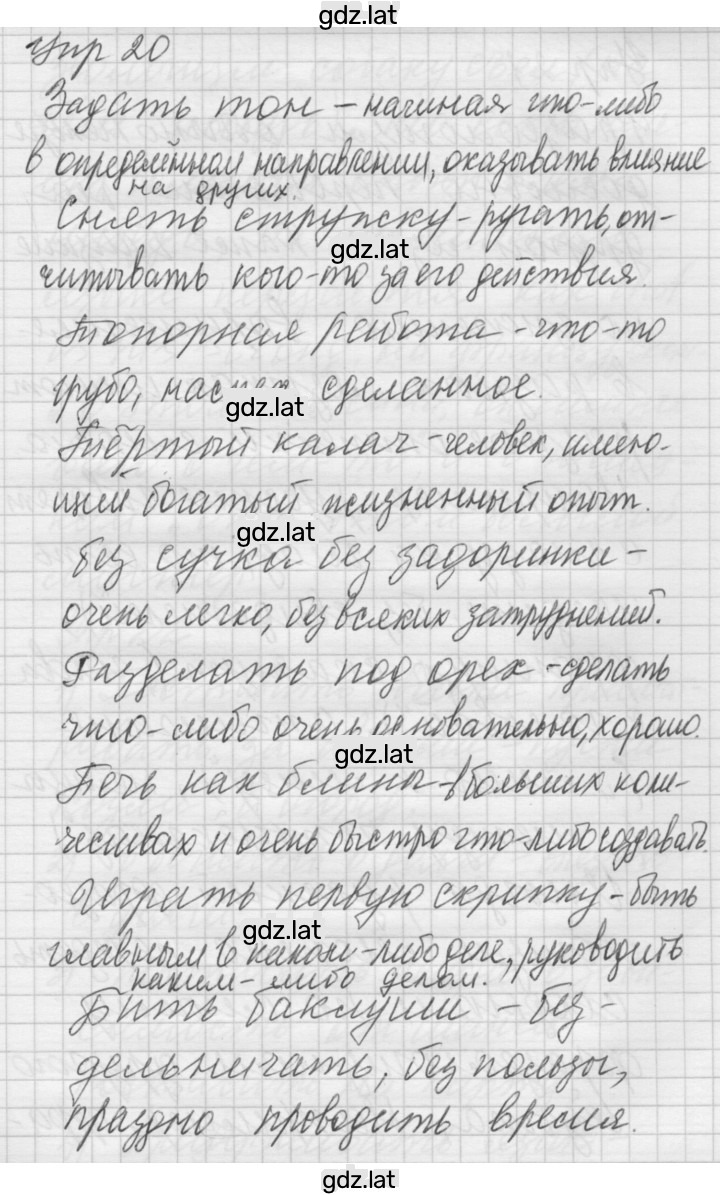 gdz.lat
Упр 20
Задать тон – начиная что-либо
в определённом направлении, оказывать влияние
на других.
Снять стружку – ругать, от-
gdz.lat
читывать кого-то за его действия.
Топорная работа – что-то
грубо, наспех сделанное.
gdz.lat
Тёртый калач – человек, имею-
щий богатый жизненный опыт.
gdz.lat
без сучка без задоринки –
очень легко, без всяких затруднений.
Разделать под орех – сделать
что-либо очень основательно, хорошо.
gdz.lat
Печь как блины – в больших коли-
чествах и очень быстро что-либо создавать.
Играть первую скрипку – быть
gdz.lat
главным в каком-либо деле, руководить
каким-либо делом.
Бить баклуши – без-
дельничать, без пользы,
праздно проводить время.
gdz.lat